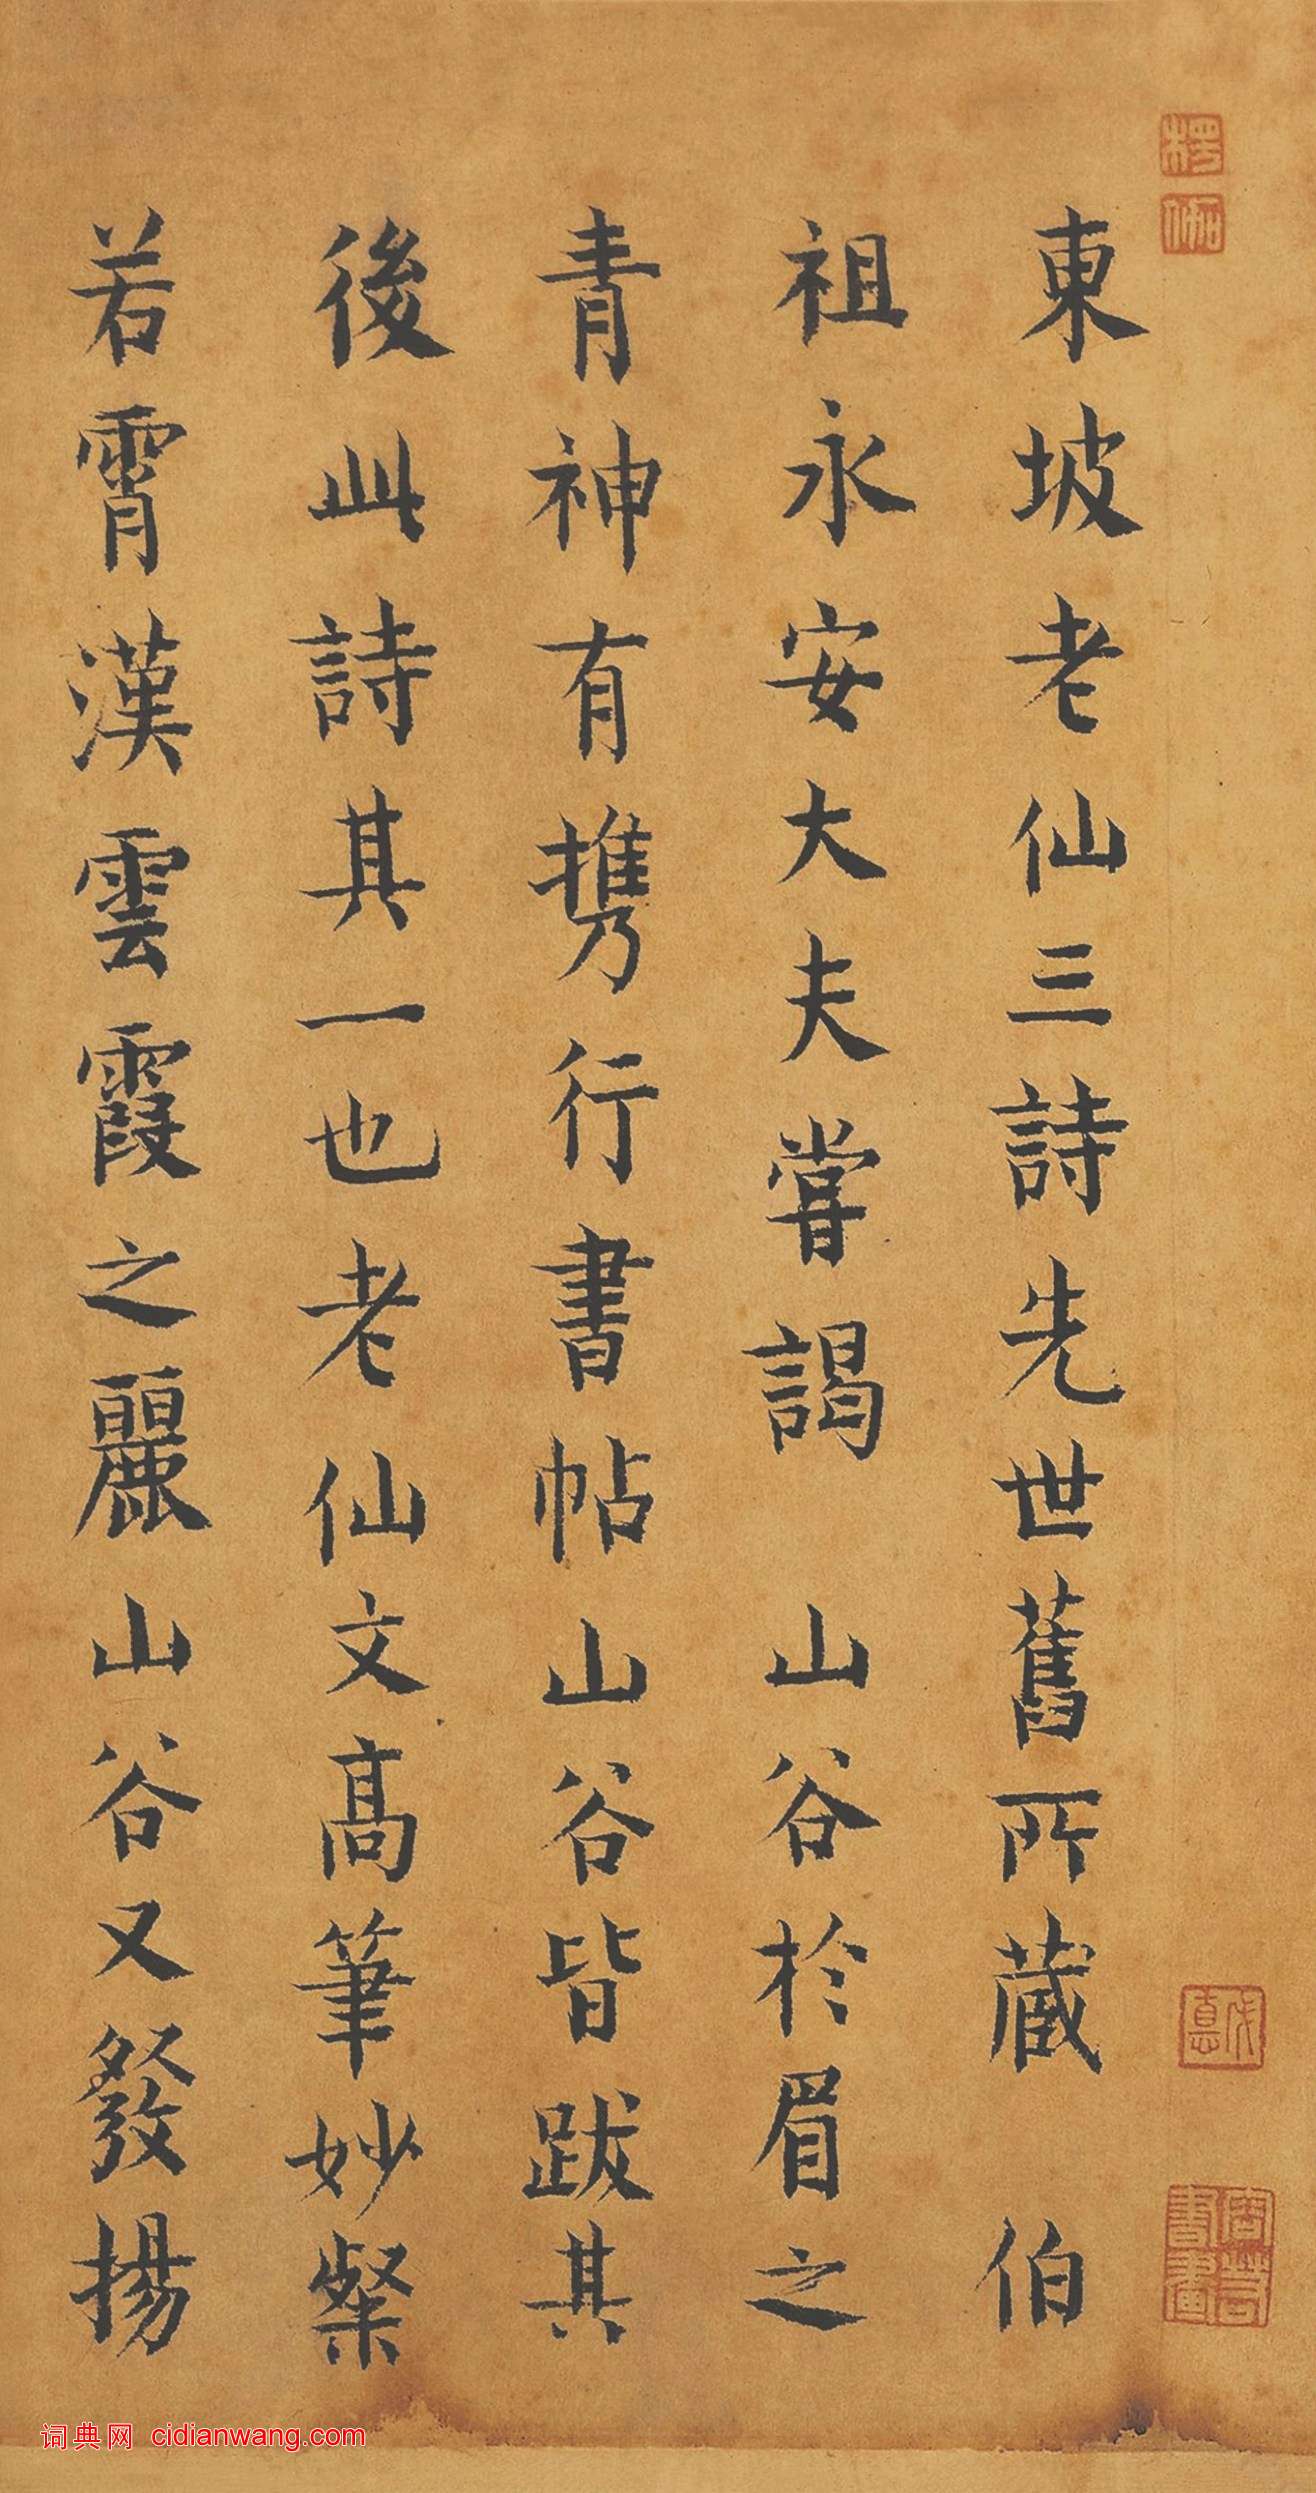 東坡老仙三詩先世舊所藏 伯
祖永安大夫嘗謁 山谷於眉之
青神有携行書帖山谷皆跋其
後此詩其一也老仙文高筆妙粲
若霄漢雲霞之麗山谷又發揚
楞伽
词典网 cidianwang.com